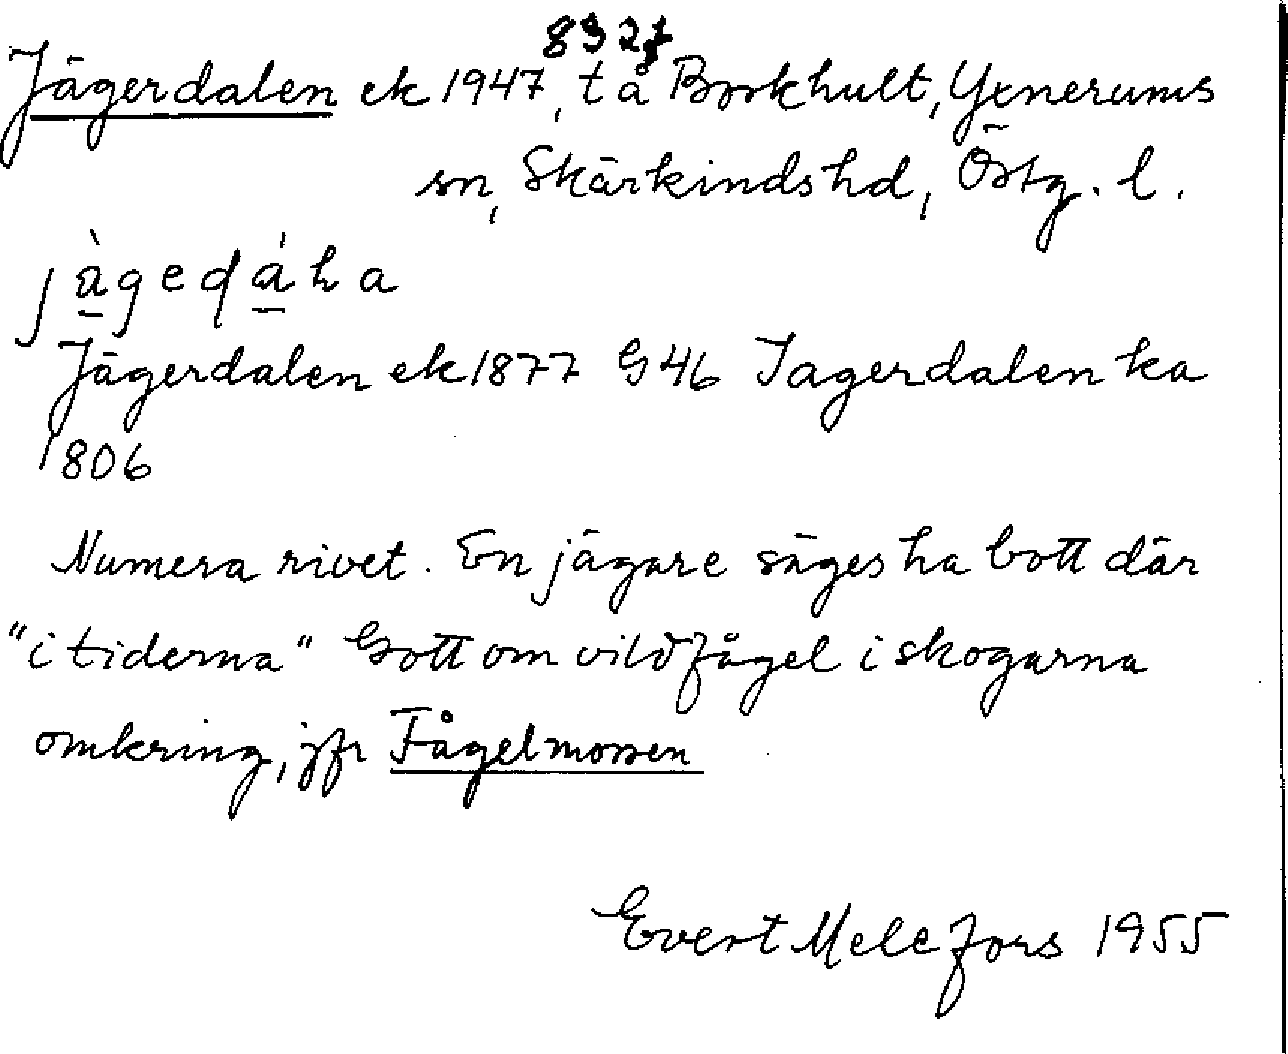 8327
Jägerdalen ek 1947, t å Borkhult, Yxnerums
sn, Skärkinds hd, Östg. l.
Jägerdalen ek 1877 G 46 Jagerdalen ka
1806
Numera rivet. En jägare säges ha bott där
"i tiderna" Gott om vildfågel i skogarna
omkring, jfr Fågelmossen
Evert Melefors 1955